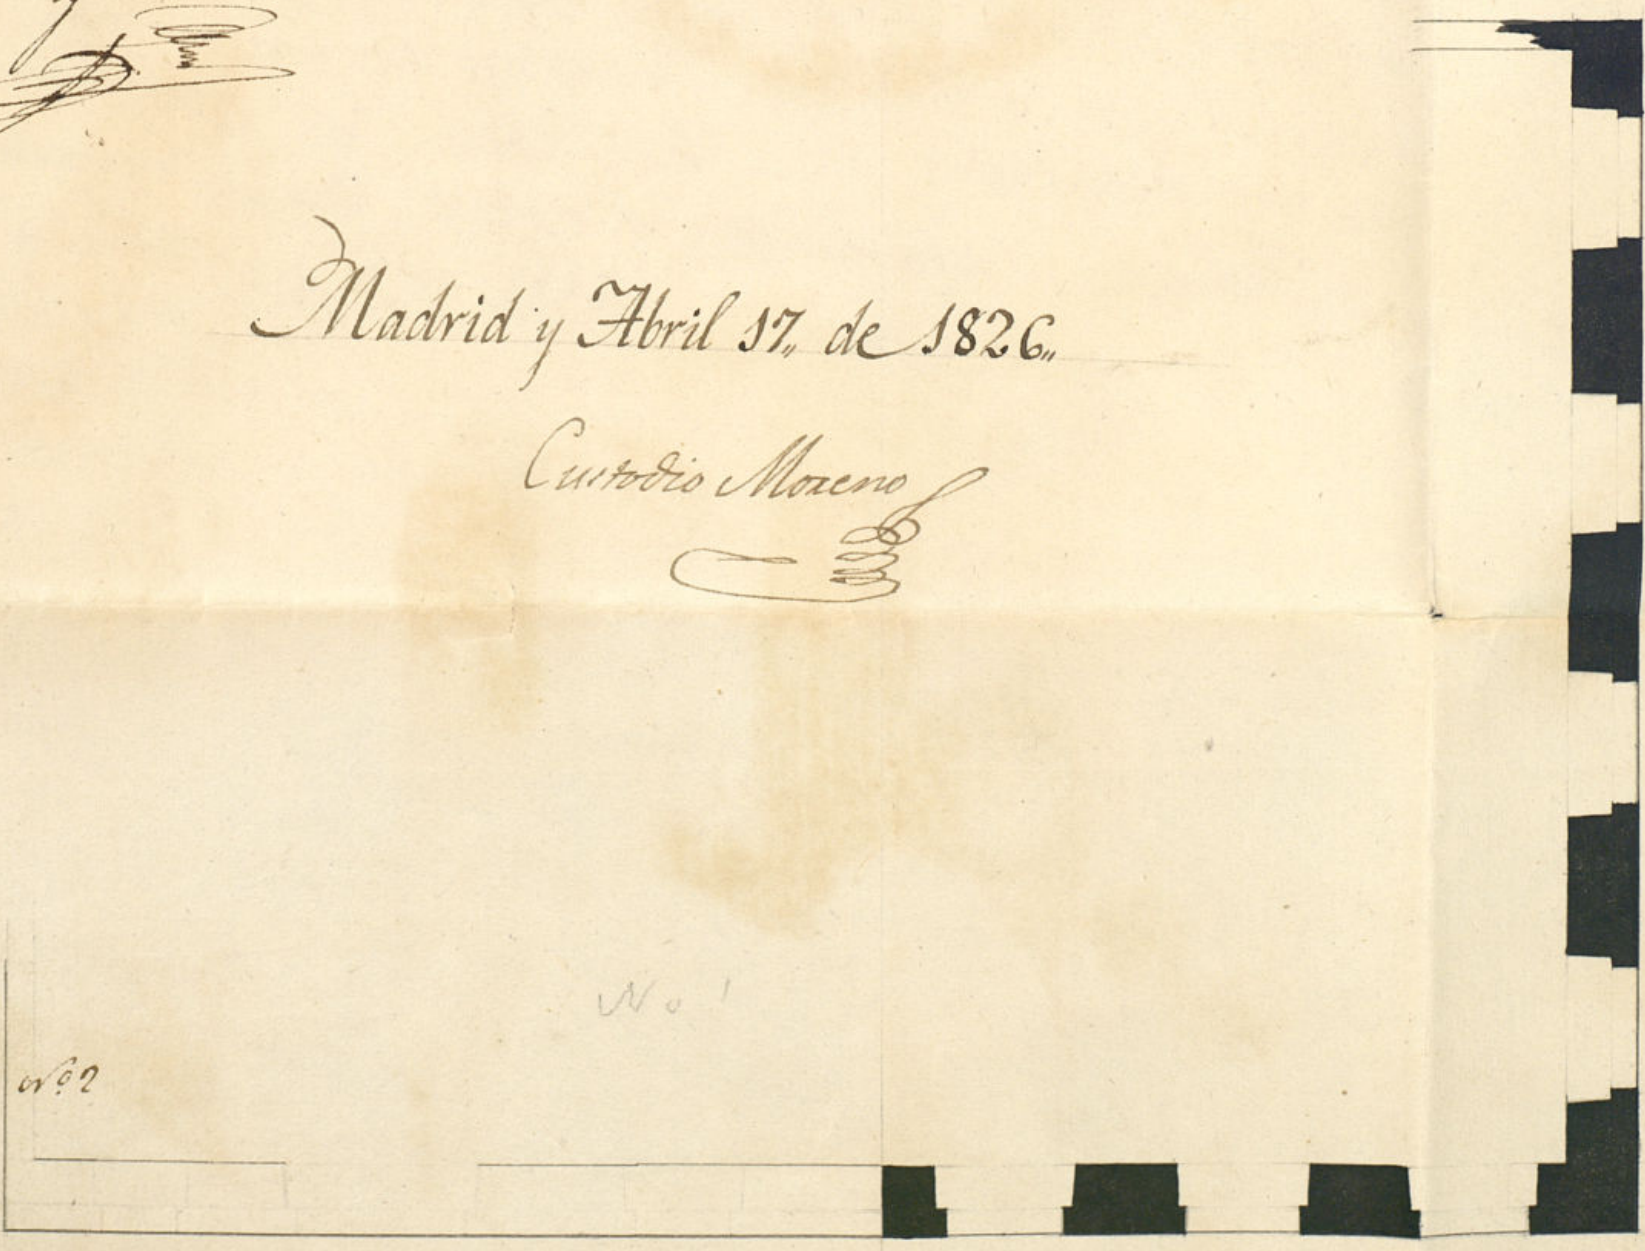 Madrid y Abril 17,, de 1826,,
Custodio Moreno
No 1
Nº 2